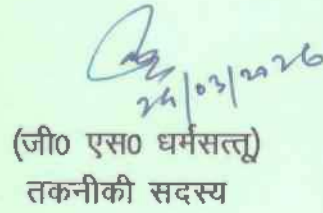 24/03/2026
(जी0 एस0 धर्मसत्तू)
तकनीकी सदस्य